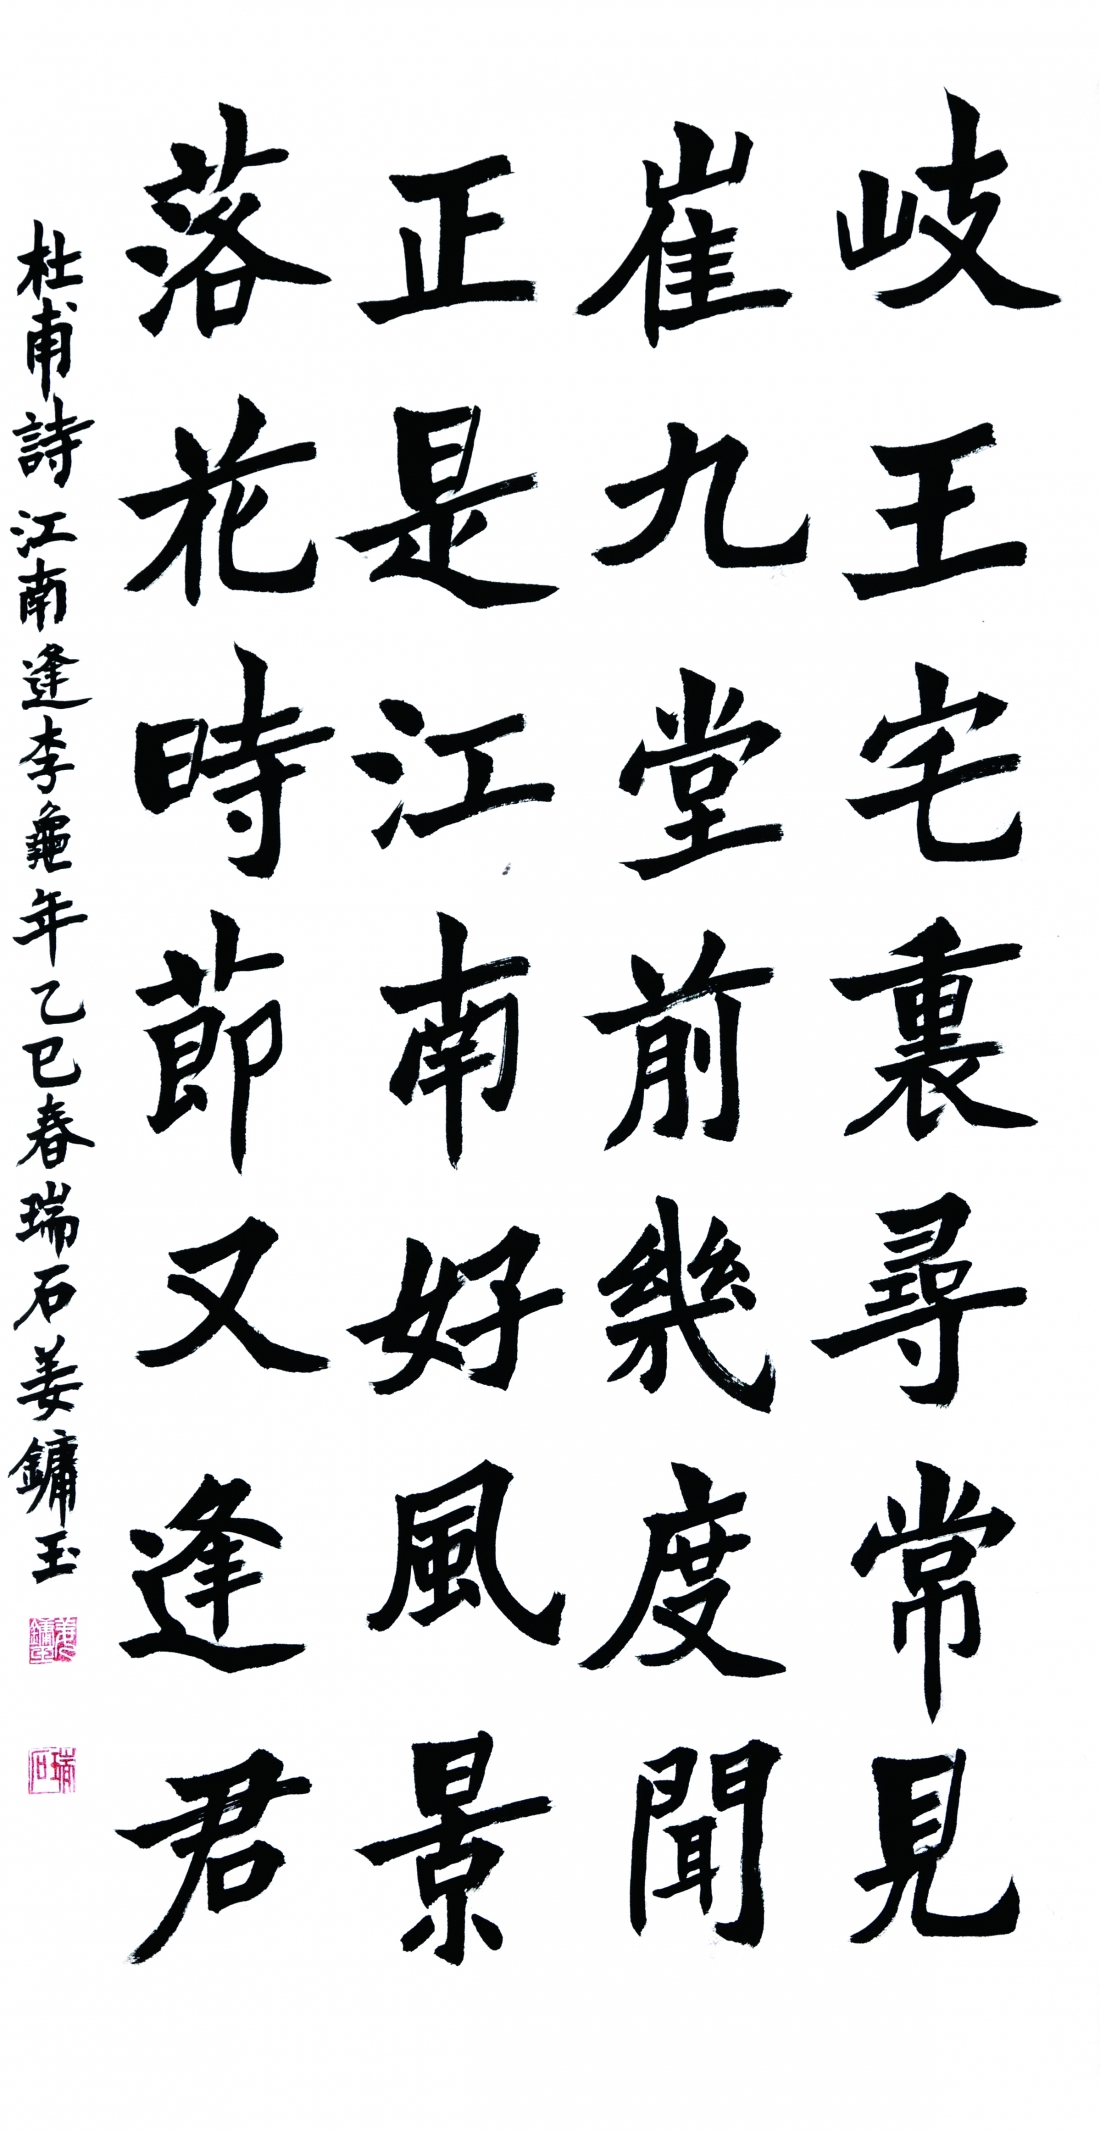 岐王宅裏尋常見
崔九堂前幾度聞
正是江南好風景
落花時節又逢君
杜甫詩江南逢李龜年乙巳春瑞石姜鏞玉
姜鏞玉
瑞石